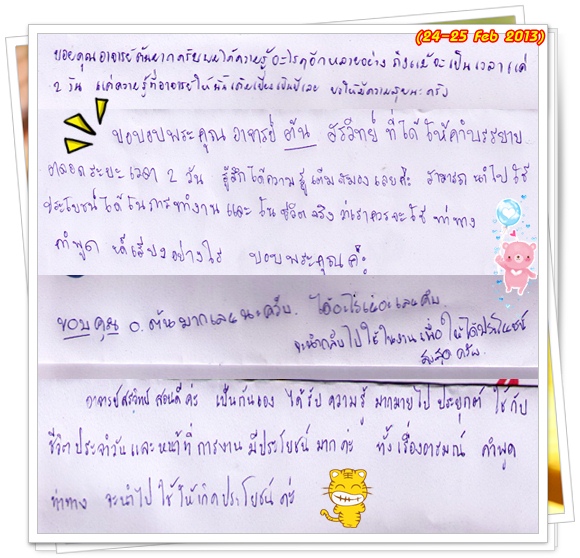 (24-25 Feb 2013)
ขอบคุณอาจารย์ต้นมากครับผมได้ความรู้อะไรๆอีกหลายอย่าง ถึงแม้จะเป็นเวลาแค่
2 วัน แต่ความรู้ที่อาจารย์ให้นั้นเต็มเปี่ยมเป็นปีเลย ขอให้มีความสุขนะครับ
ขอขอบพระคุณ อาจารย์ ต้น สรวิทย์ ที่ได้ให้คำบรรยาย
ตลอดระยะเวลา 2 วัน รู้สึกได้ความรู้เต็มสมองเลยค่ะ สามารถนำไปใช้
ประโยชน์ได้ในการทำงาน และในชีวิตจริง ว่าเราควรจะใช้ ท่าทาง
คำพูด น้ำเสียงอย่างไร ขอบพระคุณค่ะ
ขอบคุณ อ. ต้นมากเลยนะครับ. ได้อะไรเยอะเลยครับ
จะนำกลับไปใช้ในงานเพื่อให้ได้ประโยชน์
สูงสุดครับ.
อาจารย์สรวิทย์ สอนดีค่ะ เป็นกันเอง ได้รับความรู้ มากมายไปประยุกต์ ใช้กับ
ชีวิตประจำวันและหน้าที่การงาน มีประโยชน์มากค่ะ ทั้งเรื่องอารมณ์ คำพูด
ท่าทาง จะนำไปใช้ให้เกิดประโยชน์ค่ะ